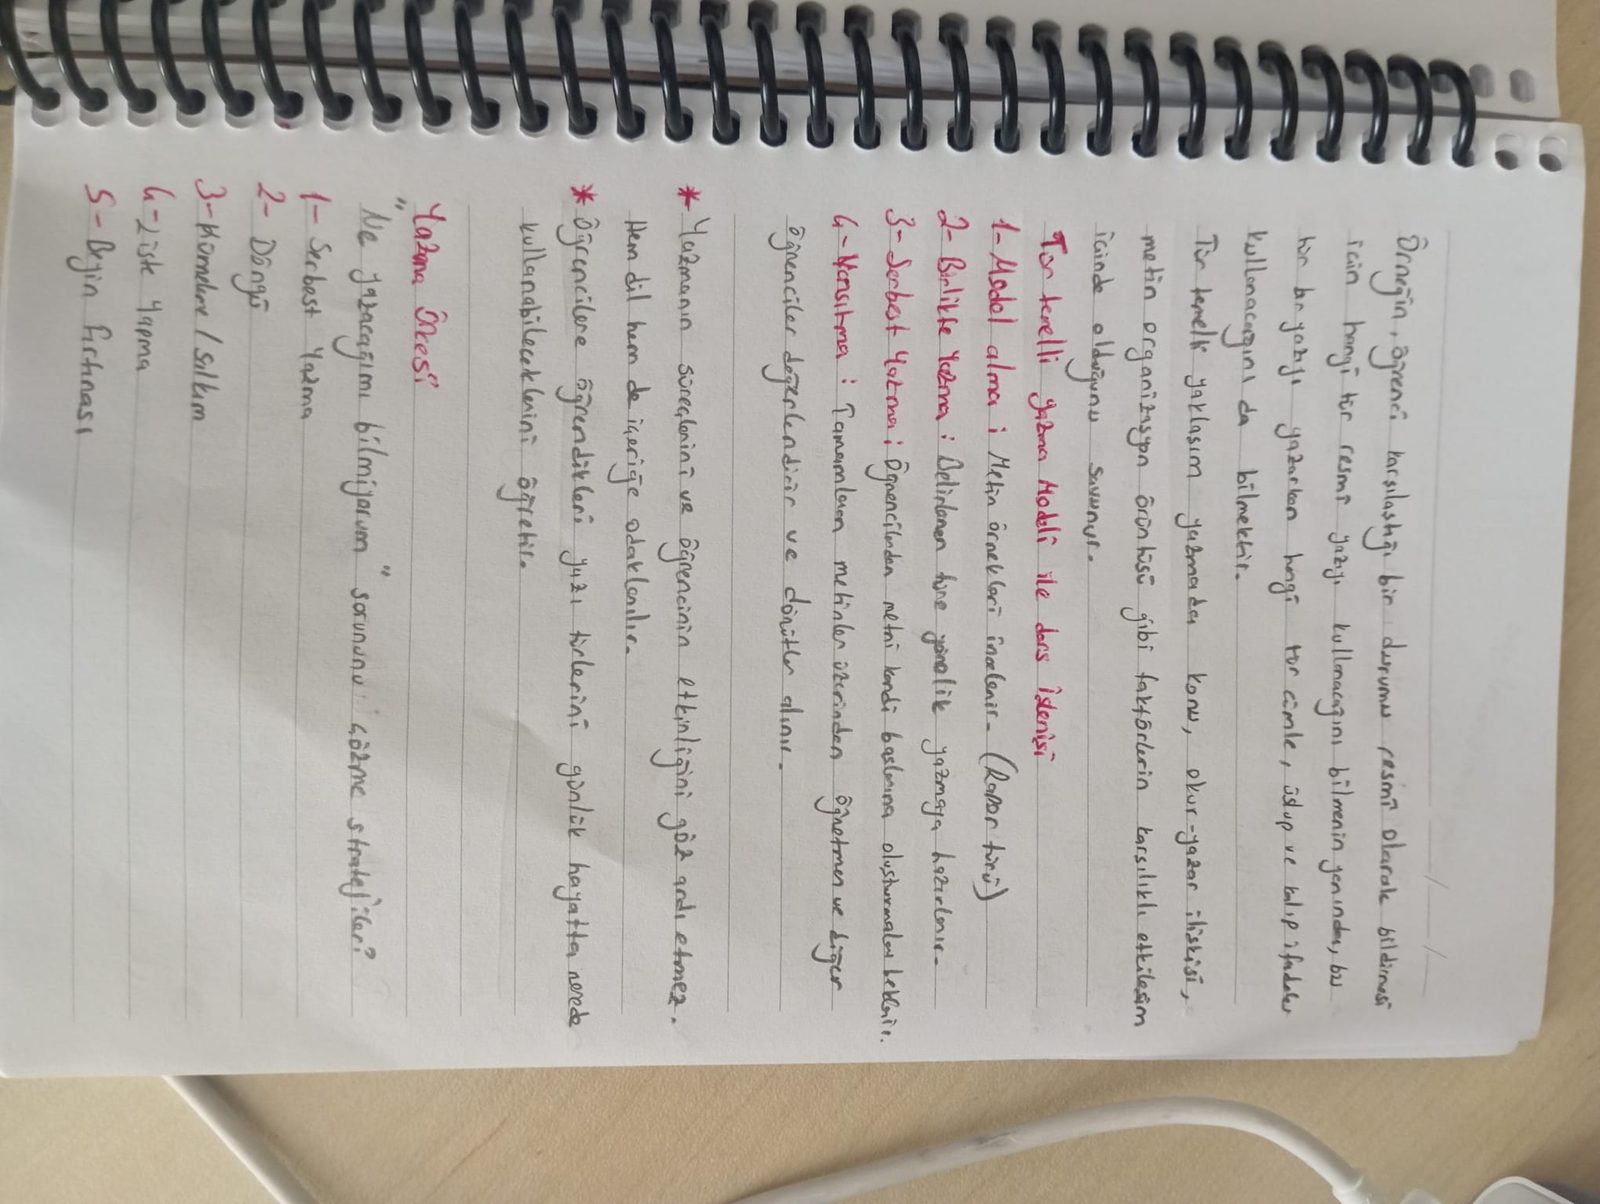 Örneğin, öğrenci karşılaştığı bir durumu resmi olarak bildirmesi
için hangi tür resmi yazıyı kullanacağını bilmenin yanında, bu
tür bir yazıyı yazarken hangi tür cümle, üslup ve kalıp ifadeler
kullanacağını da bilmektir.
Tür temelli yaklaşım yazmada konu, okur-yazar ilişkisi,
metin organizasyon örüntüsü gibi faktörlerin karşılıklı etkileşim
içinde olduğunu savunur.
Tür temelli yazma Modeli ile ders işlenişi
1- Model alma : Metin örnekleri incelenir. (Rapor türü)
2- Birlikte Yazma : Belirlenen türe yönelik yazmaya hazırlanır.
3- Serbest Yazma : Öğrencilerden metni kendi başlarına oluşturmaları beklenir.
4- Yansıtma : Tamamlanan metinler üzerinden öğretmen ve diğer
öğrenciler değerlendirir ve dönütler alınır.
* Yazmanın süreçlerini ve öğrencinin etkinliğini göz ardı etmez.
Hem dil hem de içeriğe odaklanılır.
* Öğrencilere öğrendikleri yazı türlerini günlük hayatta nerede
kullanabileceklerini öğretir.
Yazma Öncesi
"Ne yazacağımı bilmiyorum" sorununu çözme stratejileri
1- Serbest Yazma
2- Döngü
3- Kümeleme / Salkım
4- Liste Yapma
5- Beyin Fırtınası